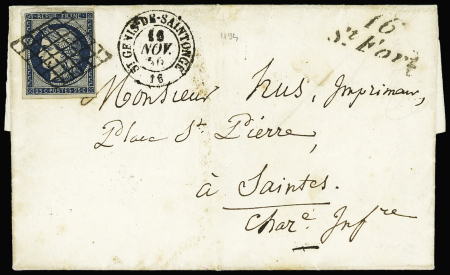 REPUB. FRANC.
25 C. POSTES 25 C.
ST GENIS-DE-SAINTONGE
16
NOV.
50
16
1194
16
St Fort
Monsieur hus, Imprimeur,
Place St Pierre,
à Saintes.
Chare Infre